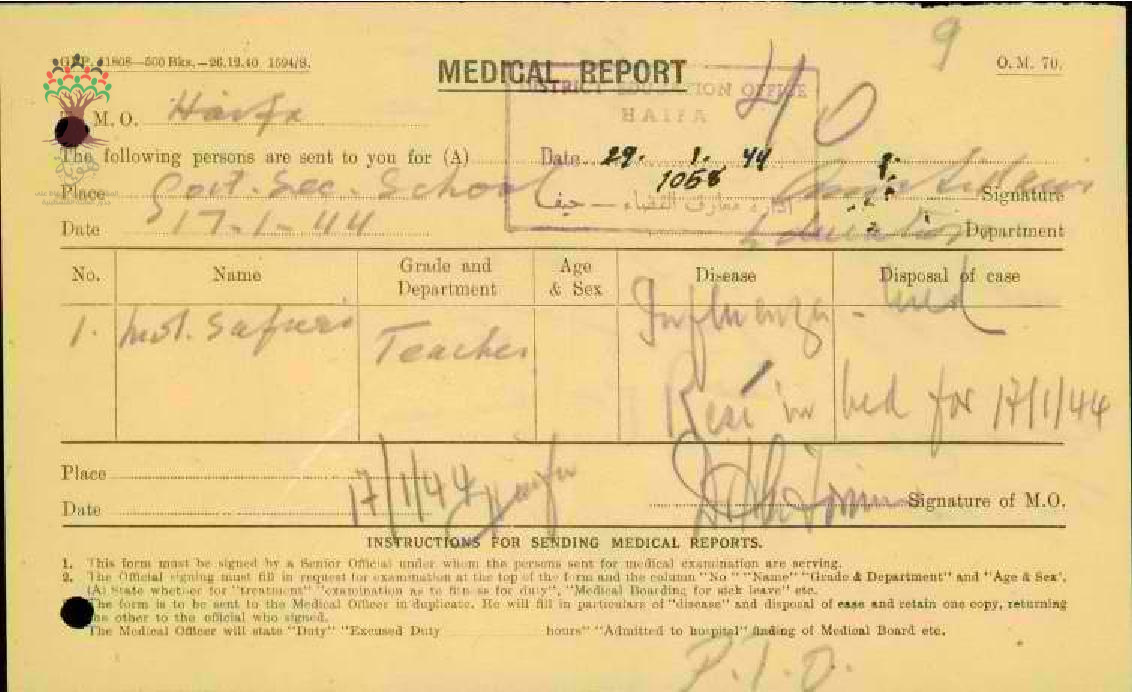 9
G.P.P. 11808—500 Bks.—26.12.40 1594/S.
MEDICAL REPORT
O. M. 70.
DISTRICT EDUCATION OFFICE
HAIFA
40
M. O. Haifa
The following persons are sent to you for (A)
Date 29. 1. 44
1058
ادارة معارف القضاء — حيفا
Place Govt. Sec. School
Signature
Date 17-1-44
Education Department
No. Name Grade and Department Age & Sex Disease Disposal of case
1. Mst. Safuri Teacher Influenza -
Rest in bed for 17/1/44
Place
Date 17/1/44 Haifa
Signature of M.O.
INSTRUCTIONS FOR SENDING MEDICAL REPORTS.
1. This form must be signed by a Senior Official under whom the persons sent for medical examination are serving.
2. The Official signing must fill in request for examination at the top of the form and the column "No" "Name" "Grade & Department" and "Age & Sex".
(A) State whether for "treatment" "examination as to fitness for duty", "Medical Boarding for sick leave" etc.
The form is to be sent to the Medical Officer in duplicate. He will fill in particulars of "disease" and disposal of case and retain one copy, returning
the other to the official who signed.
The Medical Officer will state "Duty" "Excused Duty hours" "Admitted to hospital" finding of Medical Board etc.
P.T.O.